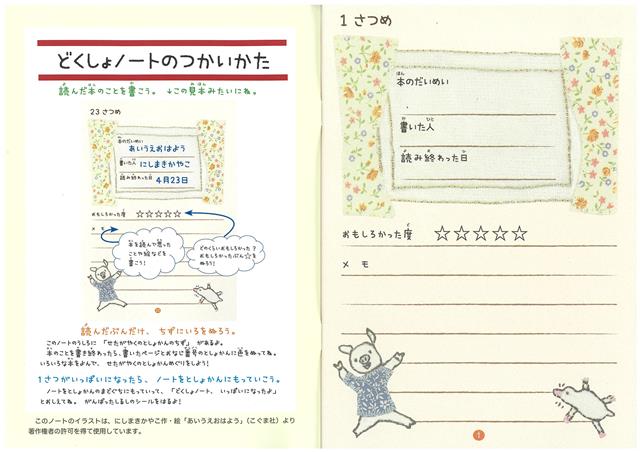 どくしょノートのつかいかた
読んだ本のことを書こう。 ↓この見本みたいにね。
23 さつめ
本のだいめい
あいうえおはよう
書いた人 にしまきかやこ
読み終わった日 4月23日
おもしろかった度 ☆☆☆☆☆
メモ
本を読んで思った
ことや絵などを
書こう!
どのくらいおもしろかった?
おもしろかったぶん☆を
ぬろう!
読んだぶんだけ、ちずにいろをぬろう。
このノートのうしろに「せたがやくのとしょかんのちず」があるよ。
本のことを書き終わったら、書いたページとおなじ番号のとしょかんに色をぬってね。
いろいろな本をよんで、せたがやくのとしょかんめぐりをしよう!
1さつがいっぱいになったら、ノートをとしょかんにもっていこう。
ノートをとしょかんのまどぐちにもっていって、「どくしょノート、いっぱいになったよ」
とおしえてね。 がんばったしるしのシールをはるよ!
このノートのイラストは、にしまきかやこ作・絵「あいうえおはよう」(こぐま社)より
著作権者の許可を得て使用しています。
1 さつめ
ほん
本のだいめい
書いた人
読み終わった日
おもしろかった度 ☆☆☆☆☆
メモ
1